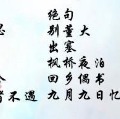 绝句
别董大
出塞
枫桥夜泊
回乡偶书
不遇 九月九日忆